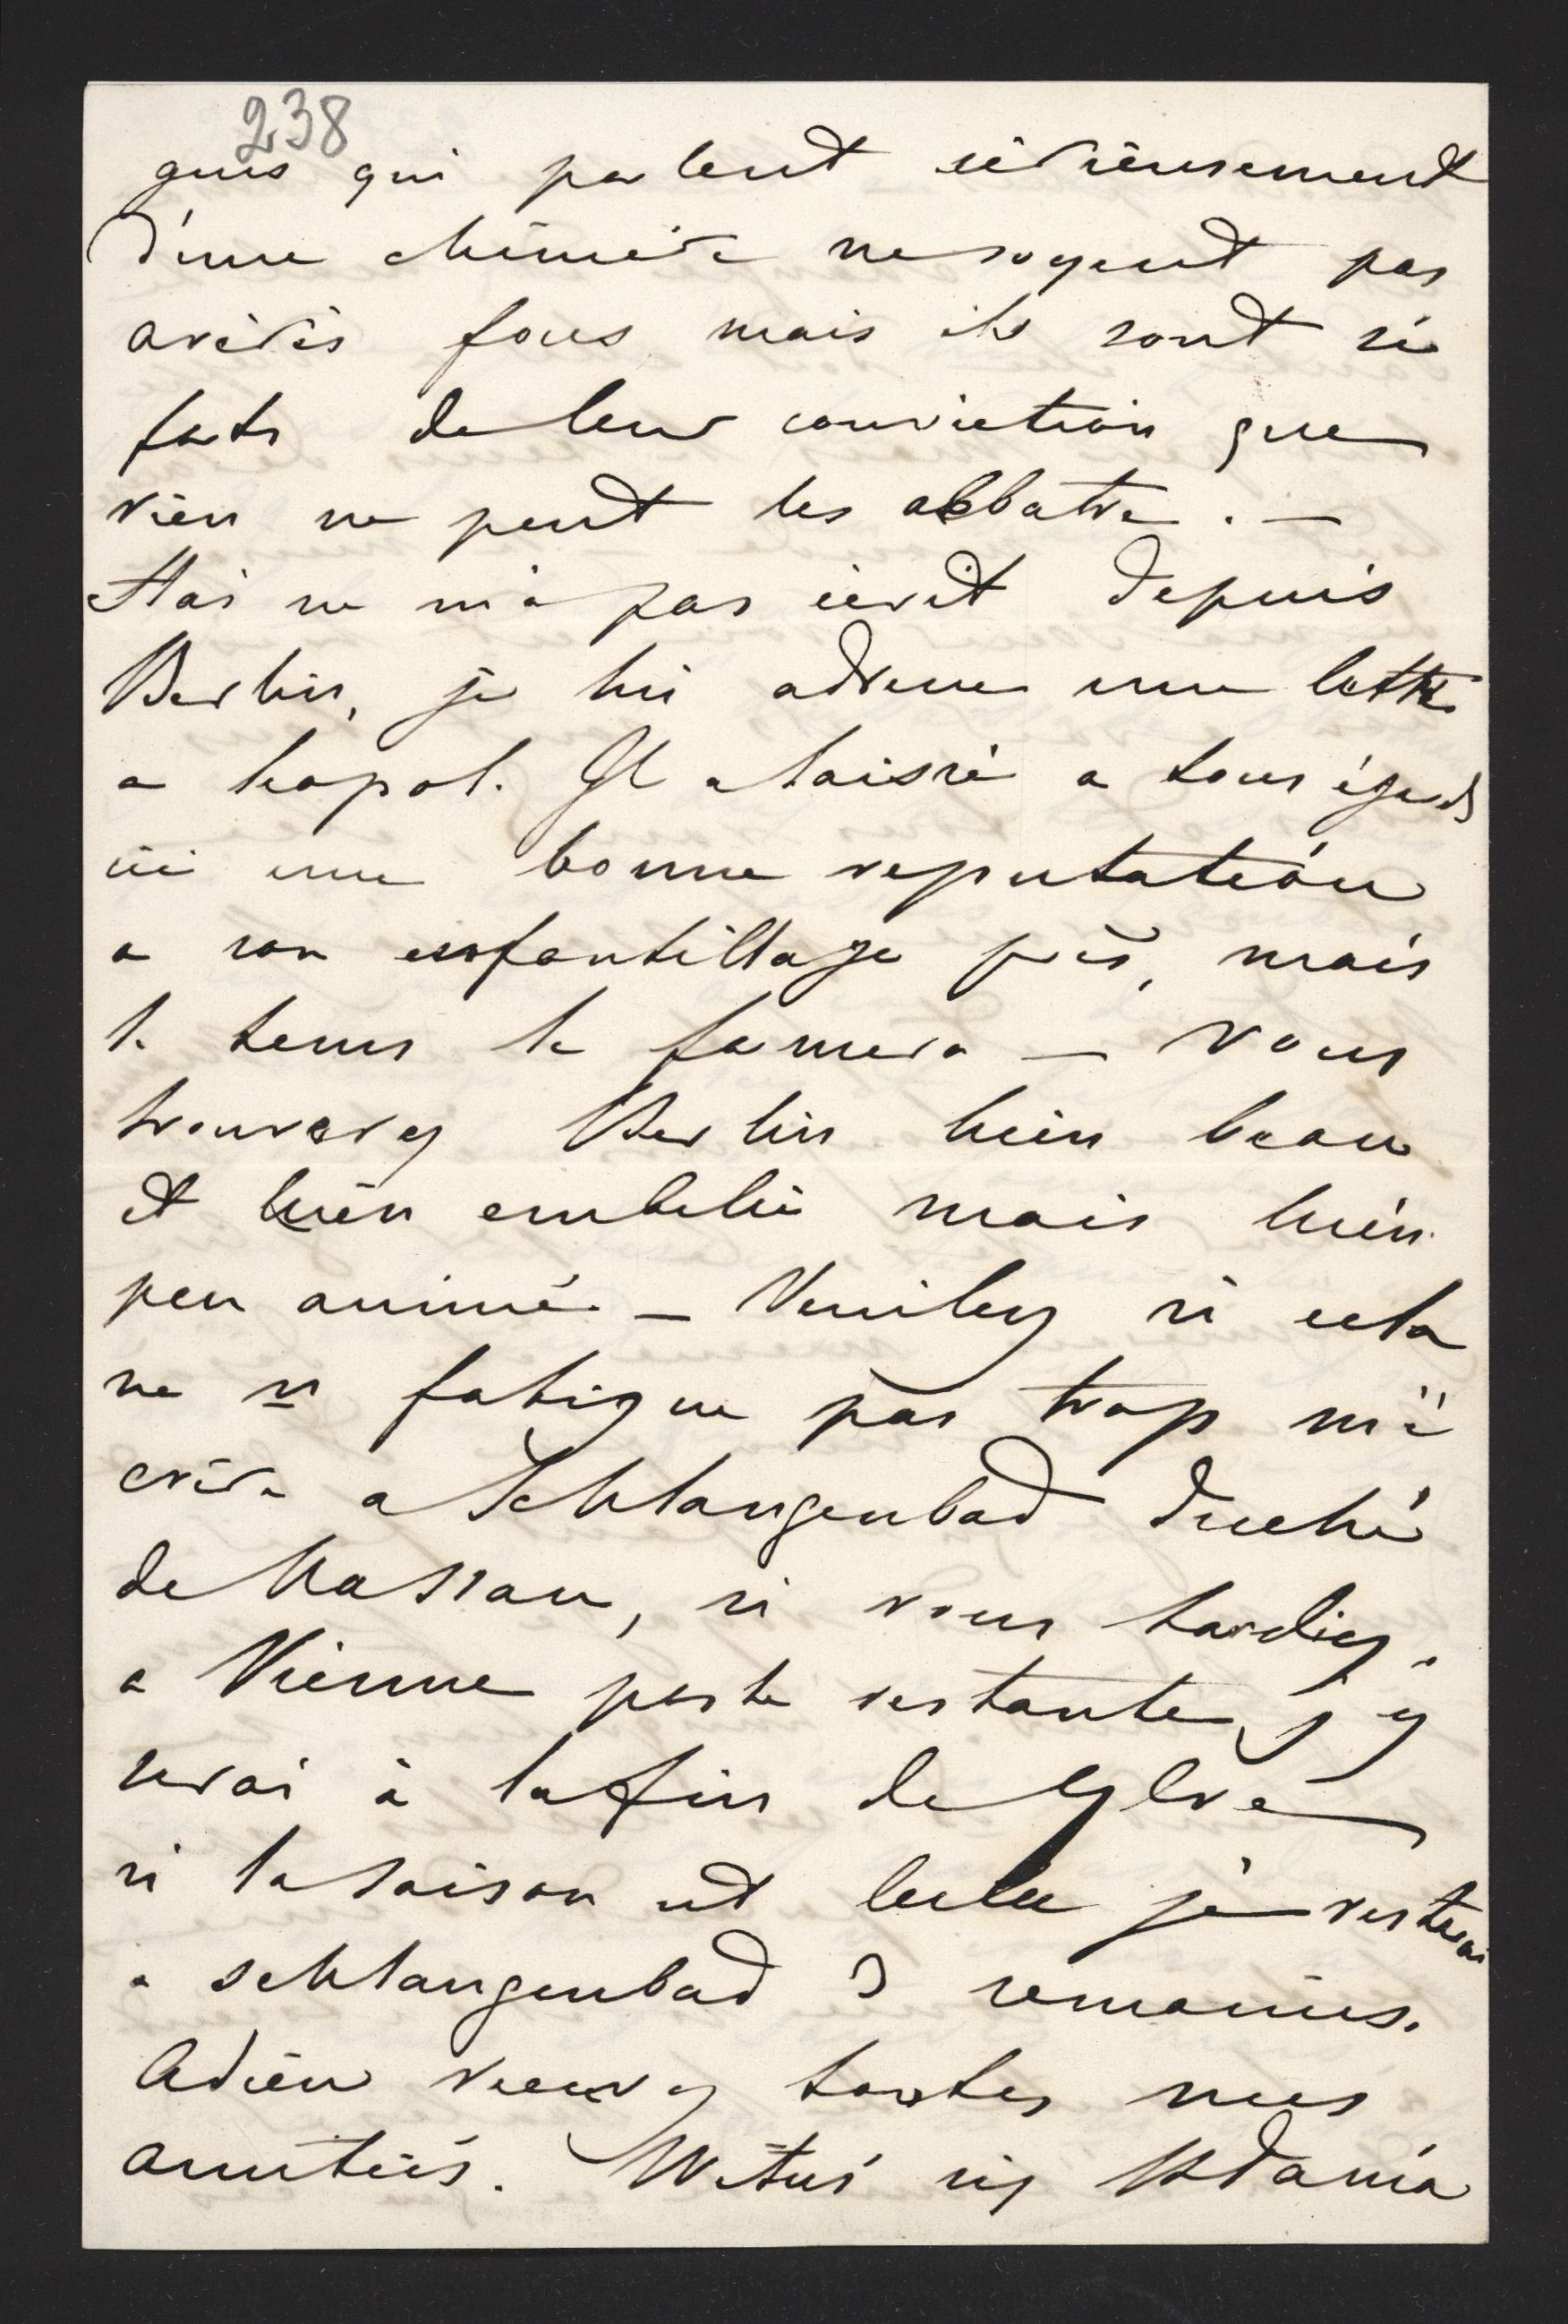 238
gens qui parlent sérieusement
d'une chimère ne soyent pas
avérés fous mais ils sont si
forts de leur conviction que
rien ne peut les abbatre. —
Stas ne m'a pas écrit depuis
Berlin, je lui adresse une lettre
a Leopol. Il a laissé a tous égards
ici une bonne reputation
a son enfantillage près, mais
le tems le formera — Vous
trouverez Berlin bien beau
et bien embelli mais bien
peu animé. — Veuilez si cela
ne vs fatigue pas trop m'é
crire a Schlangenbad duché
de Nassau, si vous tardiez,
a Vienne poste restante, j'y
serai à la fin de 7bre
si la saison est belle je resterai
a Schlangenbad 3 semaines.
Adieu recevez toutes mes
amitiés. Witus